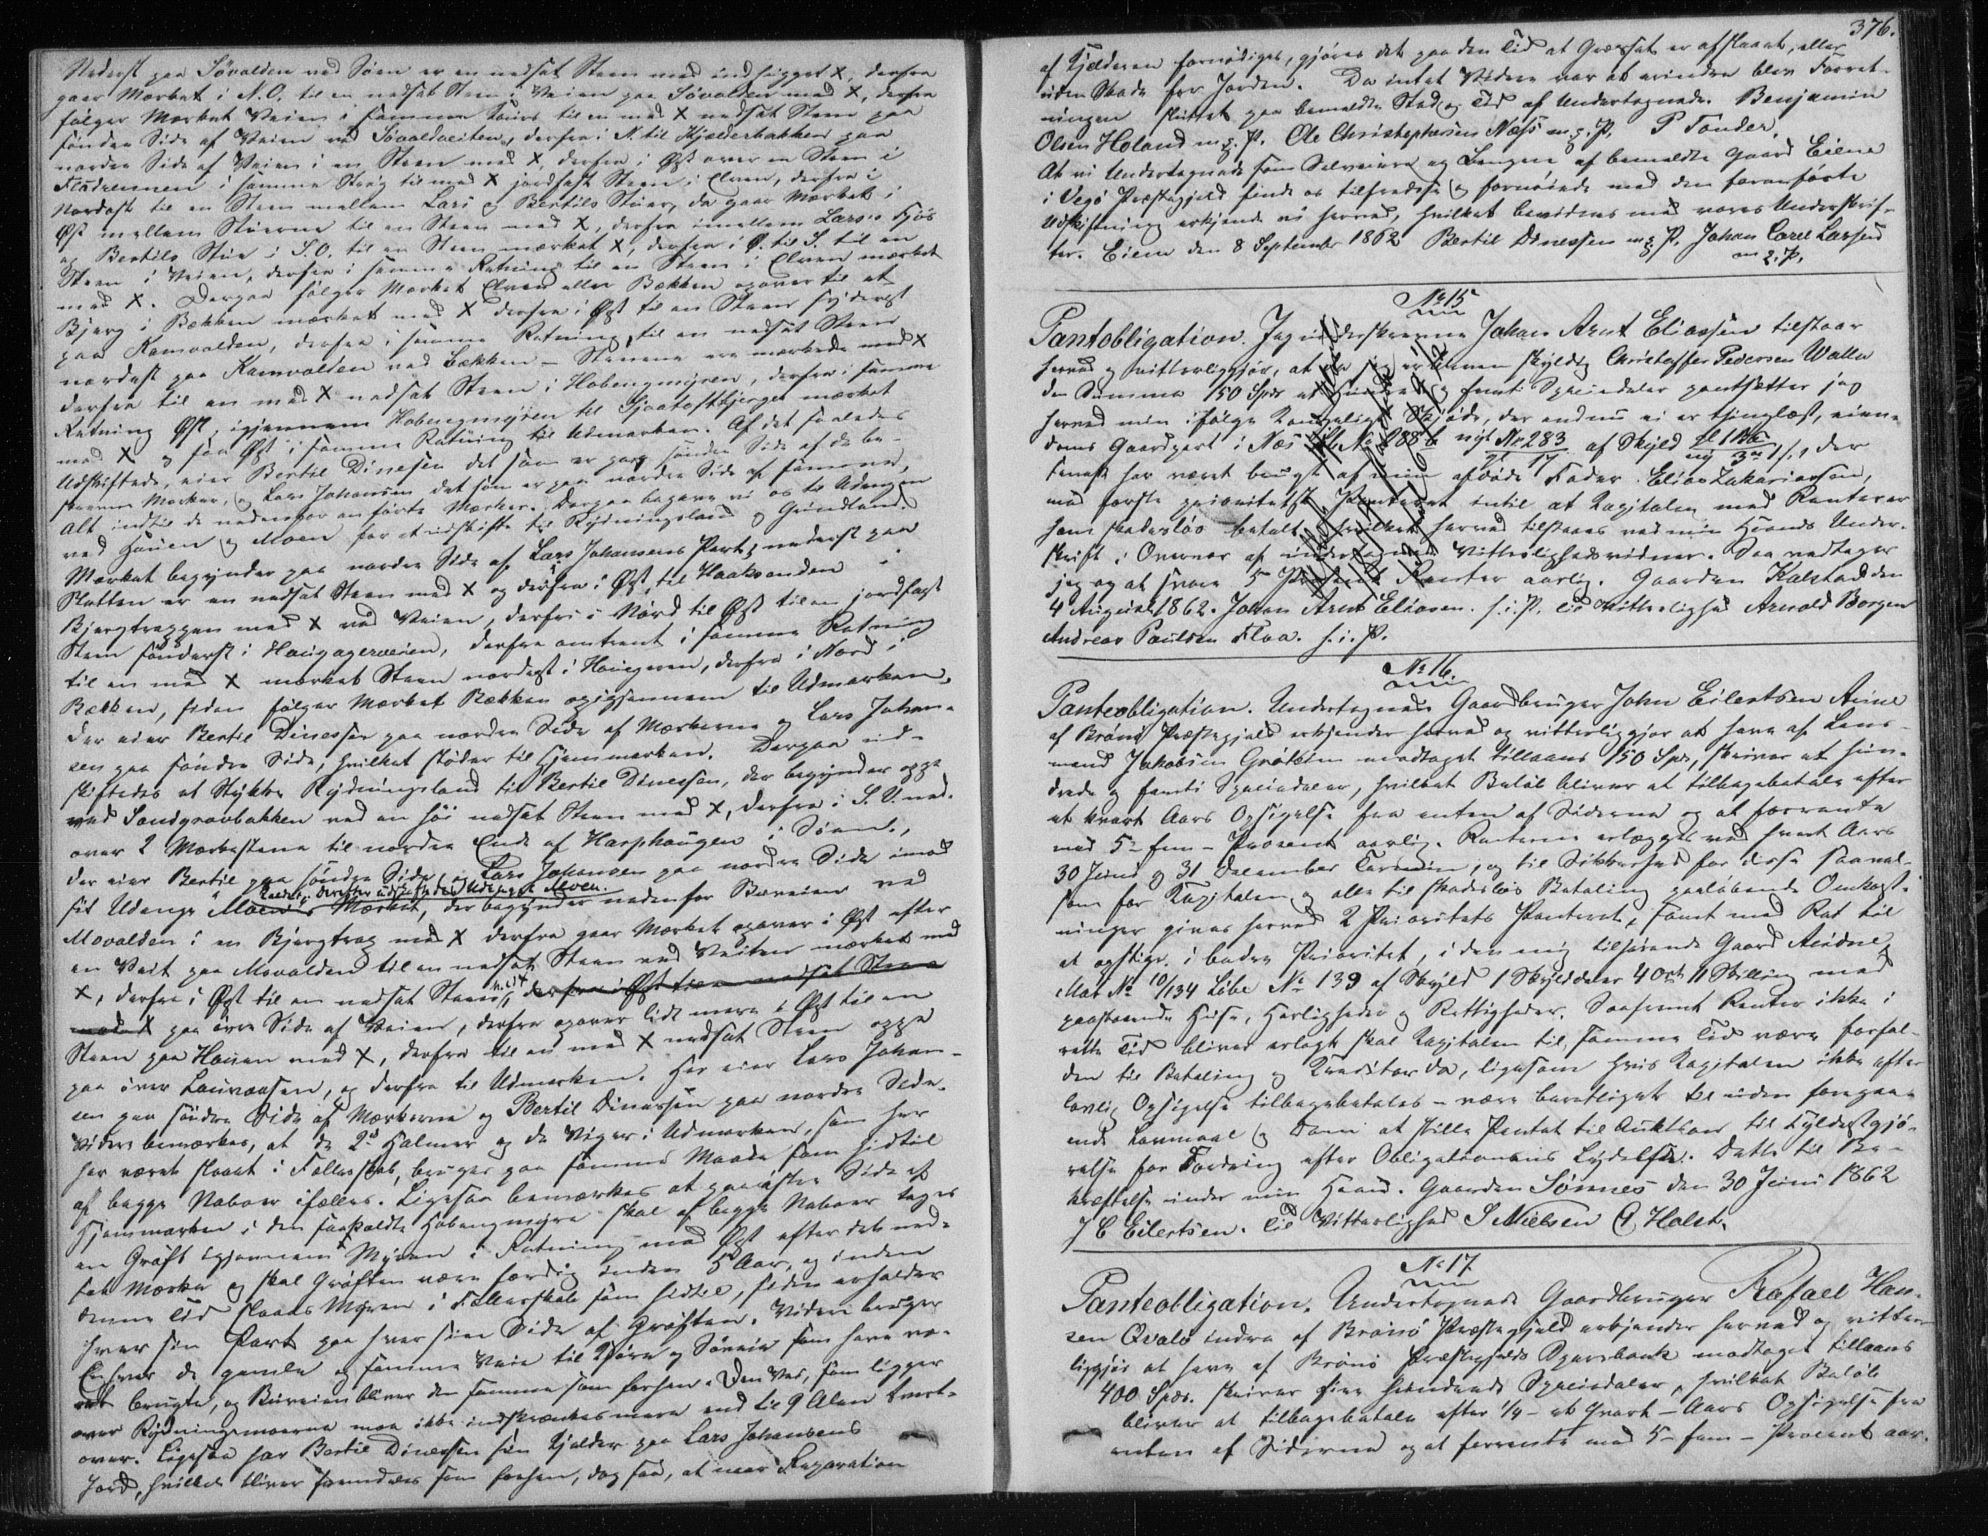 Nederst paa Sövolden ved Söen er en nedsat Steen med indhugget X, derfra
gaar Mærket i N.O. til en nedsat Steen i Veien paa Sövolden med X, derfra
følger Mærket Veien i samme Cours til en med X nedsat Steen paa
söndre Side af Veien ved derfra i N. til Hjelderbakken paa
nordre Side af Veien i en Steen med X, derfra i Øst over en Steen i
i samme Strög til med X jordfast Steen i Elven, derfra i
Nordost til en Steen mellem Lars og Bertils Stuer, da gaar Mærket i
Øst mellem Stuerne til en Steen med X, derfra imellem Lars's Fjös
og Bertils Stue i S.O. til en Steen mærket X, derfra i Ø. til S. til en
Steen i Veien, derfra i samme Retning til en Steen i Elven mærket
med X. Derpaa følger Mærket Elven eller Bækken opover til et
Bjerg i Bækken mærket med X derfra i Øst til en Steen syderst
paa Kamvolden, derfra i samme Retning til en nedsat Steen
nordost paa Kamvolden ved Bækken - Stenene ere mærkede med X
derfra til en med X nedsat Steen i Hobengmyren, derfra i samme
Retning Øst, igjennem Hobengmyren til mærket
med X og saa Øst i samme Retning til Udmarken. Af det saaledes
Udskiftede, eier Bertil Dinesen det som er paa søndre Side af de be-
skrevne Mærker, og Lars Johansen det som er paa nordre Side af samme,
alt indtil de nedenfor anførte Mærker. Derpaa begave vi os til Udengen
ved Hauen og Moen for at udskifte til Rydningsland og Grundland.
Mærket begynder paa nordre Side af Lars Johansens Part; nederst paa
Slotten er en nedsat Steen med X og derfra i Øst til Haaksanden i
Bjergtrappen med X ved Veien, derfra i Nord til Øst til en jordfast
Steen sönderst i Haugageren, derfra omtrent i samme Retning
til en med X mærket Steen nordost i Haugeren, derfra i Nord i
Bækken, siden følger Mærket Bækken opigjennem til Udmarken,
der eier Bertil Dinessen paa nordre Side af Mærkerne og Lars Johan-
sen paa søndre Side, hvilket støder til Hjemmarken. Derpaa ud-
skiftedes et Stykke Rydningsland til Bertil Dinessen, der begynder oppe
ved Sandgravbakken ved en høi nedsat Steen med X, derfra i S.V. ned-
over 2 Mærkestene til nordre Ende af Harphaugen i Söen,
der eier Bertil paa søndre Side og Lars Johansen paa nordre Side imod
derefter udskiftedes Udenget Moen.
sit Udenge Moen's Mærket, der begynder nedenfor Buveien ved
Movolden i en Bjergtrap med X derfra gaar Mærket opover i Øst efter
en Veit paa Movolden til en nedsat Steen ved Veiten mærket med
X, derfra i Øst til en nedsat Steen, med X derfra i Øst til en nedsat Steen
med X paa övre Side af Veien, derfra opover lidt mere i Øst til en
Steen paa Hauen med X, derfra til en med X nedsat Steen oppe
paa över og derfra til Udmarken. Her eier Lars Johan-
sen paa söndre Side af Mærkerne og Bertil Dinessen paa nordre Side.
Videre bemærkes, at de 2de Holmer og de Viger i Udmarken, som her
har været slaaet i Fællesskab, bruges paa samme Maade som hidtil
af begge Naboer ifælles. Ligesaa bemærkes at paa östre Side af
Hjemmarken i den saakaldte Hobengmyre skal af begge Naboer tages
en Gröft igjennem Myren i Retning med Øst efter det ned-
satte Mærke og skal Gröften være færdig inden 5 Aar, og inden
denne Tid slaaes Myren i Fællesskab som hidtil, siden erholder
hver sin Part paa hver sin Side af Gröften. Videre bruger
Enhver de gamle og samme Veie til Söen og Söveie som have væ-
ret brugte, og Buveien bliver den samme som forhen. Den Ved, som ligger
over Rydningsmoerne maa ikke indskrænkes mere end til 9 Alen tvert-
over. Ligesaa har Bertil Dinessen sin Kjelder paa Lars Johansens
Jord, hvilket bliver fremdeles som forhen, dog saa, at naar Reparation
376.
af Kjelderen fornødiges, gjøres det paa den Tid at Græsset er afslaaet, eller
uden Skade for Jorden. Da intet Videre var at erindre blev Forret-
ningen sluttet paa bemeldte Sted og Tid af Undertegnede. Benjamin
Olsen Holand m.p.P. Ole Christophersen Næss m.p.P. P Tonder.
At vi Undertegnede som Selveiere og Brugere af bemeldte Gaard Eiene
i Vegø Præstegjeld finde os tilfredse og fornöiede med den foranførte
Udskiftning erkjende vi herved, hvilket bevidnes med vores Underskrif-
ter. Eiene den 8 September 1862 Bertil Dinessen m.p.P. Johan Carel Larsen
m.p.P.
No 15
Pantobligation. Jeg underskrevne Johan Arnt Eliassen tilstaar
herved og vitterliggjør, at jeg er bleven skyldig Christoffer Pedersen Walla
den Summa 150 Spdr et Hundrede og femti Speciedaler pantsetter jeg
herved min ifølge Kongeligt Skjøde, der endnu ei er thinglæst, eien-
doms Gaardpart i Næs No 288b nyt No 283 af Skyld der
senest har været brugt af min afdøde Fader Elias Zakariassen,
med første prioritets Panteret indtil at Kapitalen med Renterer
ham skadesløs betalt. hvilket herved tilstaaes ved min Haands Under-
skrift i Overvær af undertegnede Vitterlighedsvidner. Saa vedtager
jeg og at svare 5 Procent Renter aarlig. Gaarden Kalstad den
4 August 1862. Johan Arnt Eliasen. h.i.P. til Vitterlighed Arnold Borgen
Andreas Paulsen Floa. h.i.P.
No 16.
Panteobligation. Undertegnede Gaardbruger John Eilertsen Aune
af Brönö Præstegjeld erkjender herved og vitterliggjør at have af Lens-
mand Jakobsen Gröttem modtaget tillaans 150 Spd, skriver et hun-
drede og femti Speciedaler, hvilket Beløb bliver at tilbagebetale efter
et kvart Aars Opsigelse fra enten af Siderne og at forrente
med 5 - fem - Procent aarlig. Renterne erlægges ved hvert Aars
30 Juni og 31 December Termin, og til Sikkerhed for disse saavel-
som for Kapitalen og alle til skadesløs Betaling paaløbende Omkost-
ninger gives herved 2 Prioritets Panteret, samt med Ret til
at opstige i bedre Prioritet, i den mig tilhørende Gaard
Mat No 10/134 Løbe No 139 af Skyld 1 Skylddaler 4 Ort 11 Skilling med
paastaaende Huse, Herligheder og Rettigheder. Saafremt Renter ikke i
rette Tid bliver erlagt skal Kapitalen til samme Tid være forfal-
den til Betaling og Kreditor da, ligesom hvis Kapitalen ikke efter
lovlig Opsigelse tilbagebetales - være berettiget til uden foregaa-
ende Lovmaal og Dom at stille Pantet til Auktion til Fyldestgjø-
relse for Fordring efter Obligationens Lydelse. Dette til Be-
kræftelse under min Haand. Gaarden Sømnes den 30 Juni 1862
J C Eilertsen. Til Vitterlighed S Nielsen C, Holst.
No 17.
Panteobligation. Undertegnede Gaardbruger Rafael Han-
sen Qvalø indre af Brönö Præstegjeld erkjender herved og vitter-
liggjør at have af Brönö Præstegjelds Sparebank modtaget tillaans
400 Spdr. skriver fire hundrede Speciedaler, hvilket Beløb
bliver at tilbagebetale efter 1/4 - et kvart - Aars Opsigelse fra
enten af Siderne og at forrente med 5 - fem - Procent aar-